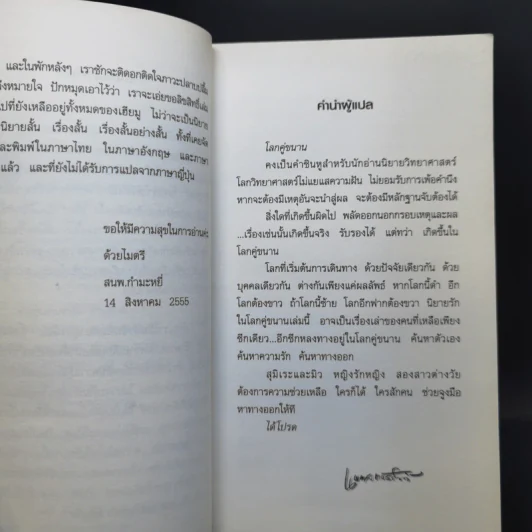 และในพักหลังๆ เราชักจะติดอกติดใจภาวะปลาบปลื้ม
หมายใจ ปักหมุดเอาไว้ว่า เราจะเอ่ยขอลิขสิทธิ์เล่ม
ที่ยังเหลืออยู่ทั้งหมดของเฮียมู ไม่ว่าจะเป็นนิยาย
นิยายสั้น เรื่องสั้น เรื่องสั้นอย่างสั้น ทั้งที่เคยจัด
และพิมพ์ในภาษาไทย ในภาษาอังกฤษ และภาษา
แล้ว และที่ยังไม่ได้รับการแปลจากภาษาญี่ปุ่น
ขอให้มีความสุขในการอ่าน
ด้วยไมตรี
สนพ.กำมะหยี่
14 สิงหาคม 2555
คำนำผู้แปล
โลกคู่ขนาน
คงเป็นคำชินหูสำหรับนักอ่านนิยายวิทยาศาสตร์
โลกวิทยาศาสตร์ไม่แยแสความฝัน ไม่ยอมรับการเพ้อคำนึง
หากจะต้องมีเหตุอันจะนำสู่ผล จะต้องมีหลักฐานจับต้องได้
สิ่งใดที่เกิดขึ้นผิดไป พลัดออกนอกกรอบเหตุและผล
...เรื่องเช่นนั้นเกิดขึ้นจริง รับรองได้ แต่ทว่า เกิดขึ้นใน
โลกคู่ขนาน
โลกที่เริ่มต้นการเดินทาง ด้วยปัจจัยเดียวกัน ด้วย
บุคคลเดียวกัน ต่างกันเพียงแค่ผลลัพธ์ หากโลกนี้ดำ อีก
โลกต้องขาว ถ้าโลกนี้ซ้าย โลกอีกฟากต้องขวา นิยายรัก
ในโลกคู่ขนานเล่มนี้ อาจเป็นเรื่องเล่าของคนที่เหลือเพียง
ซีกเดียว...อีกซีกหลงทางอยู่ในโลกคู่ขนาน ค้นหาตัวเอง
ค้นหาความรัก ค้นหาทางออก
สุมิเระและมิว หญิงรักหญิง สองสาวต่างวัย
ต้องการความช่วยเหลือ ใครก็ได้ ใครสักคน ช่วยจูงมือ
หาทางออกให้ที
ได้โปรด